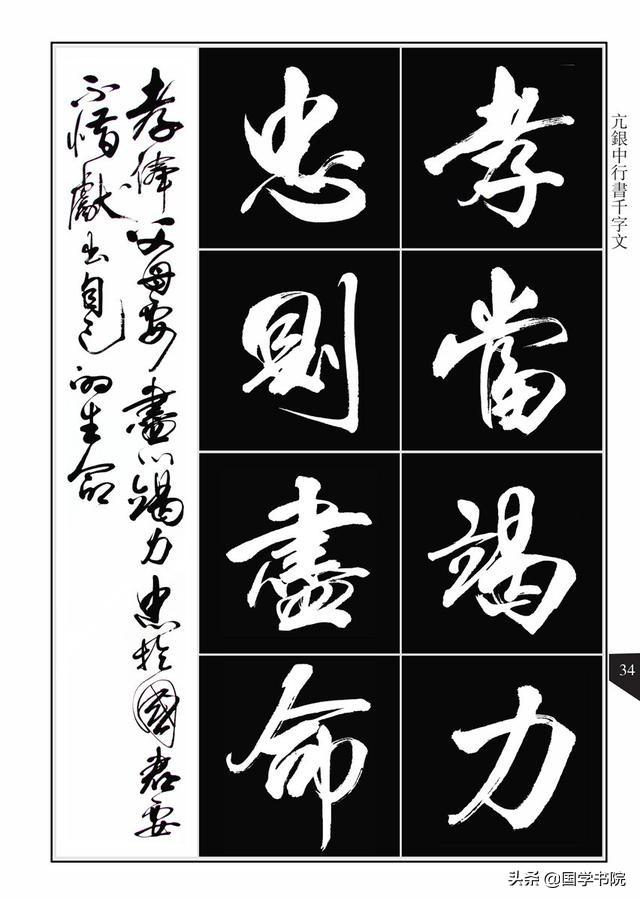 亢銀中行書千字文
孝當竭力
忠則盡命
孝俸父母要盡心竭力忠於國君要
不惜獻出自己的生命
34
头条 @国学书院